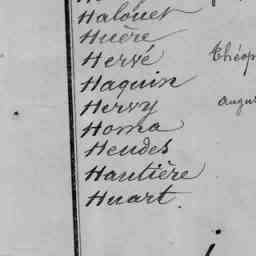 Halouet
Huère
Hervé
Haquin
Hervy
Homa
Heudes
Hautière
Huart.